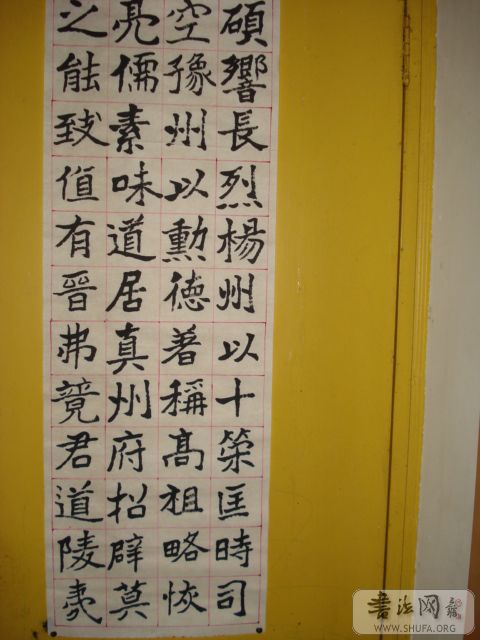 碩響長烈楊州以十策匡時司
空豫州以勲德著稱高祖略恢
亮儒素味道居真州府招辟莫
之能致值有晉弗竟君道陵夷
書法网
WWW.SHUFA.ORG